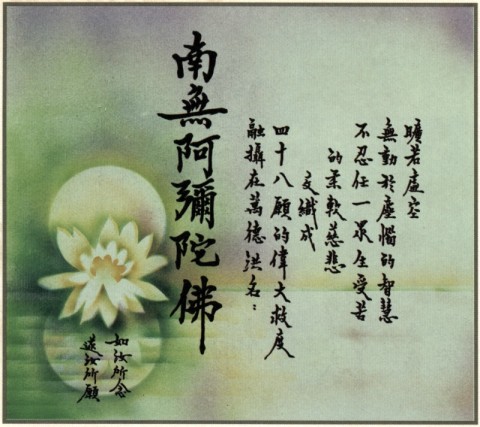 曠若虛空
無動於塵惱的智慧
不忍任一眾生受苦
的柔軟慈悲
交織成
四十八願的偉大救度
融攝在萬德洪名：
南無阿彌陀佛
如汝所念
遂汝所願